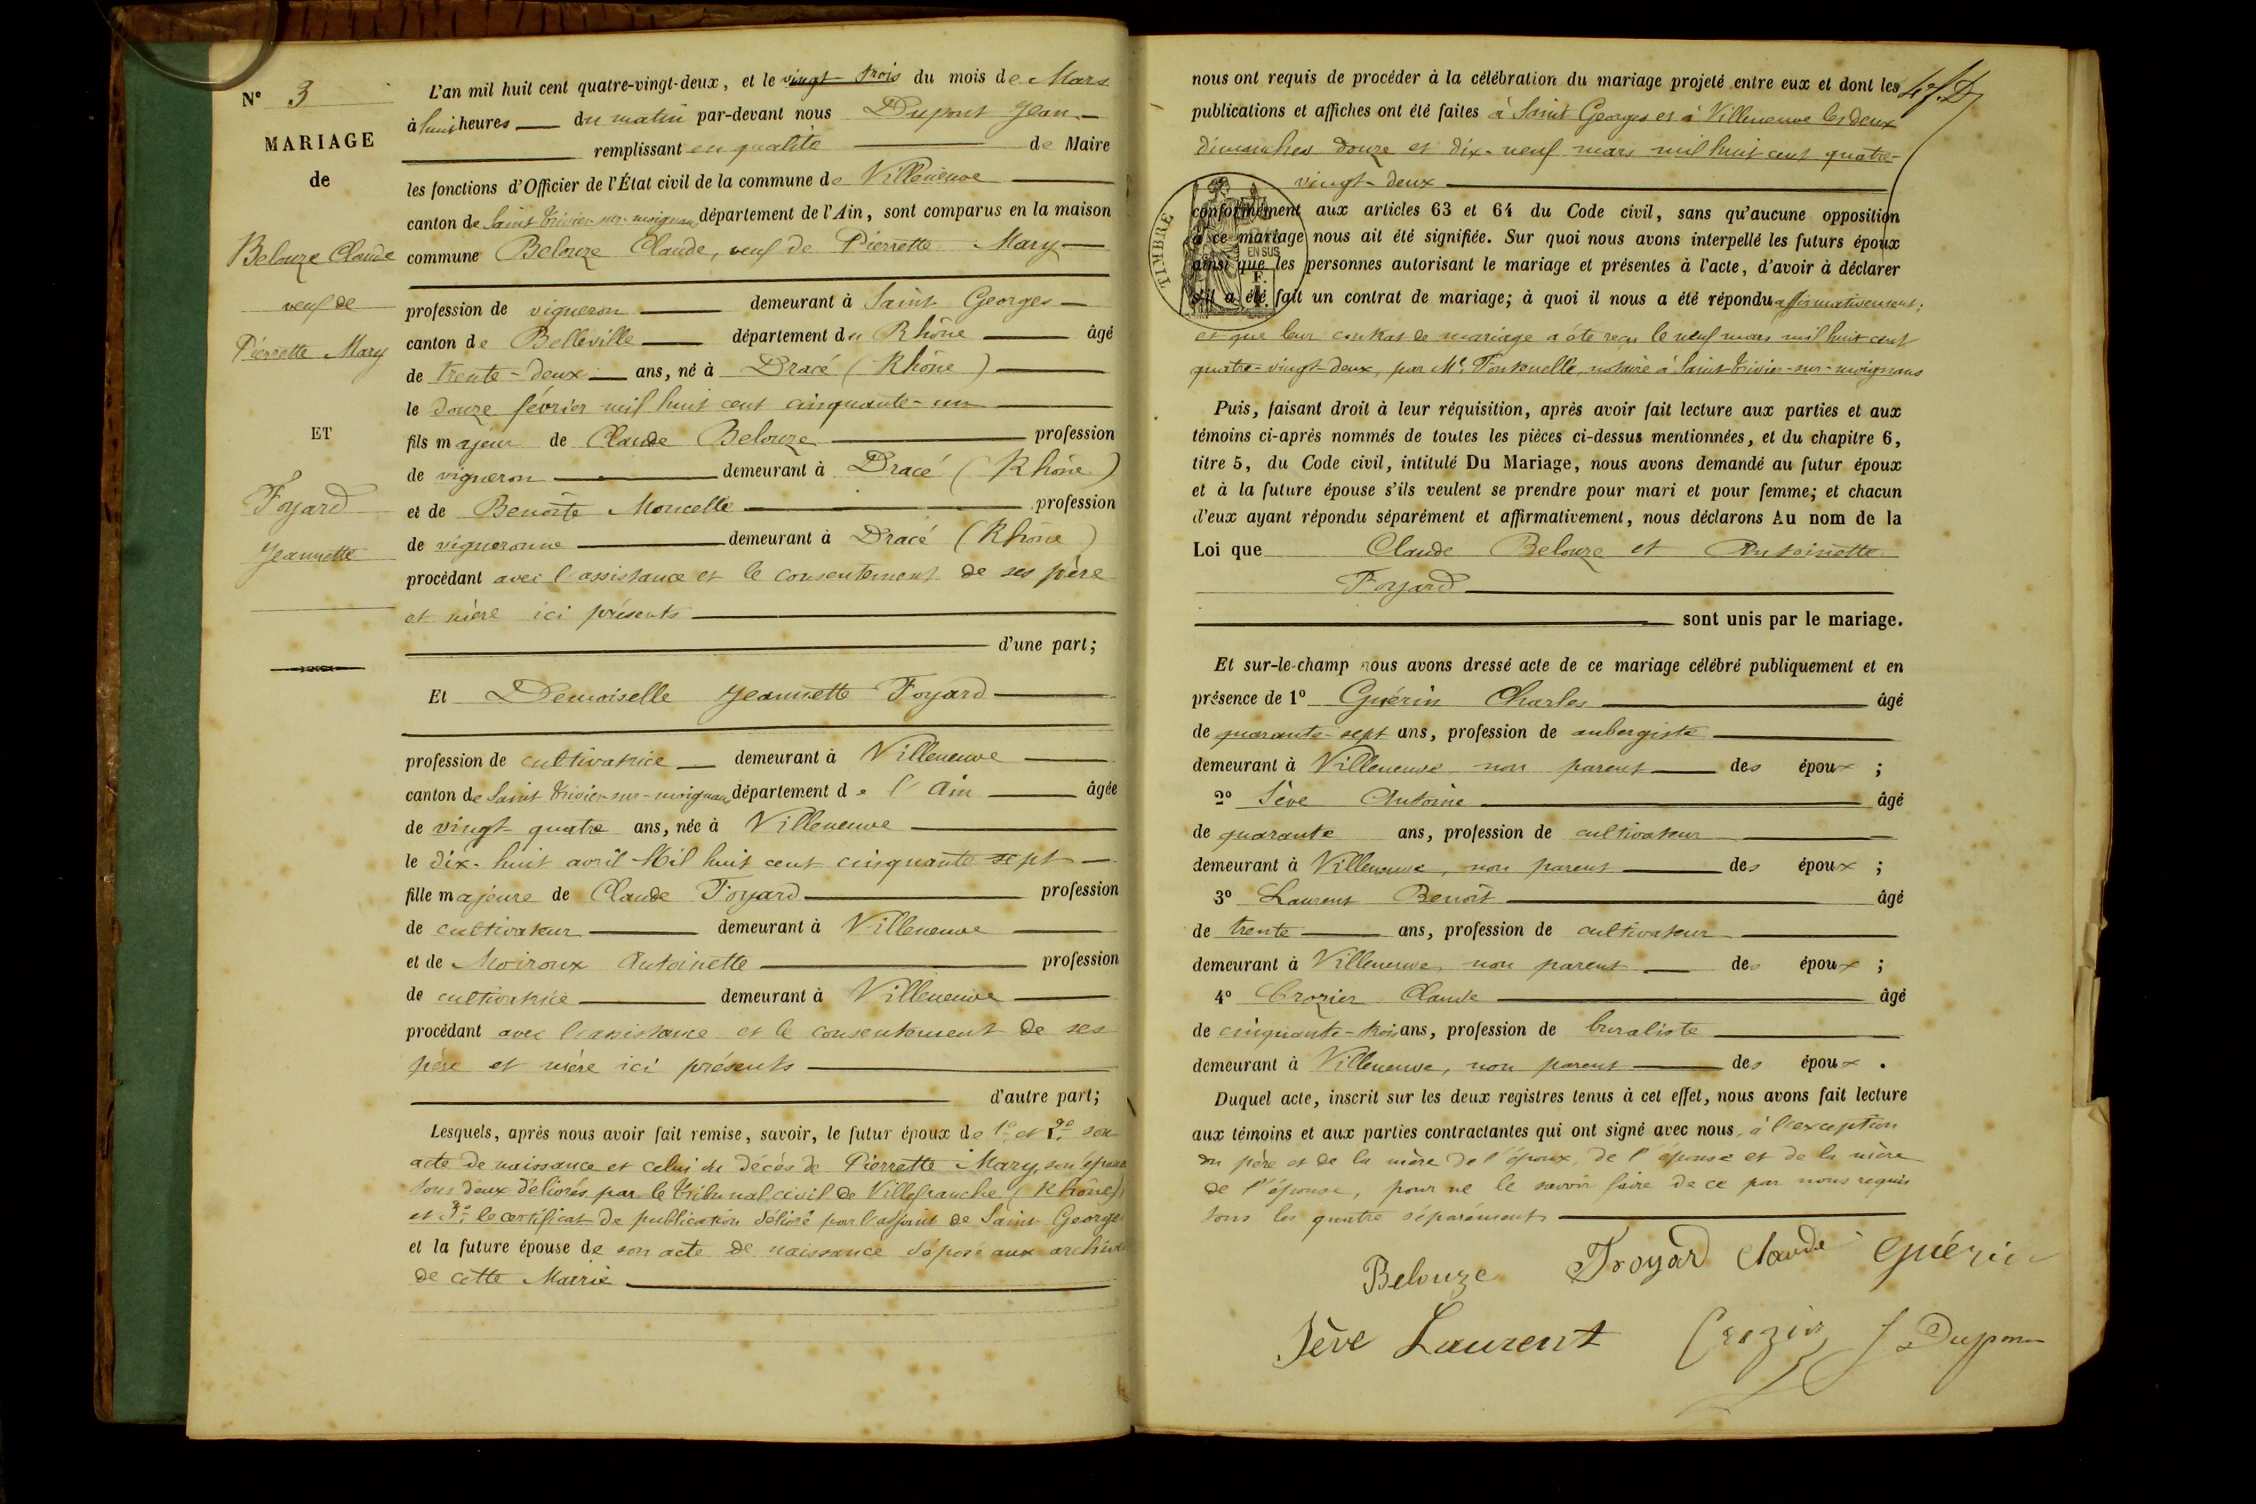 N° 3
MARIAGE
de
Belouze Claude
veuf de
Pierrette Mary
ET
Foyard
Jeannette
L'an mil huit cent quatre-vingt-deux, et le vingt-trois du mois de Mars
à huit heures du matin par-devant nous Dupont Jean
remplissant en qualité de Maire
les fonctions d'Officier de l'État civil de la commune de Villeneuve
canton de Saint Trivier-sur-moignans département de l'Ain, sont comparus en la maison
commune Belouze Claude, veuf de Pierrette Mary
profession de vigneron demeurant à Saint Georges
canton de Belleville département du Rhône âgé
de trente-deux ans, né à Dracé (Rhône)
le douze février mil huit cent cinquante-un
fils majeur de Claude Belouze profession
de vigneron demeurant à Dracé (Rhône)
et de Benoîte Moncelle profession
de vigneronne demeurant à Dracé (Rhône)
procédant avec l'assistance et le consentement de ses père
et mère ici présents
d'une part;
Et Demoiselle Jeannette Foyard
profession de cultivatrice demeurant à Villeneuve
canton de Saint Trivier-sur-moignans département de l'Ain âgée
de vingt-quatre ans, née à Villeneuve
le dix-huit avril Mil huit cent cinquante sept
fille majeure de Claude Foyard profession
de cultivateur demeurant à Villeneuve
et de Moiroux Antoinette profession
de cultivatrice demeurant à Villeneuve
procédant avec l'assistance et le consentement de ses
père et mère ici présents
d'autre part;
Lesquels, après nous avoir fait remise, savoir, le futur époux de 1° et 2° son
acte de naissance et celui du décès de Pierrette Mary, son épouse
tous deux délivrés par le tribunal civil de Villefranche (Rhône)
et 3° le certificat de publication délivré par l'adjoint de Saint Georges
et la future épouse de son acte de naissance déposé aux archives
de cette Mairie
nous ont requis de procéder à la célébration du mariage projeté entre eux et dont les
publications et affiches ont été faites à Saint Georges et à Villeneuve les deux
dimanches douze et dix-neuf mars mil huit cent quatre-
vingt-deux
conformément aux articles 63 et 64 du Code civil, sans qu'aucune opposition
à ce mariage nous ait été signifiée. Sur quoi nous avons interpellé les futurs époux
ainsi que les personnes autorisant le mariage et présentes à l'acte, d'avoir à déclarer
s'il a été fait un contrat de mariage; à quoi il nous a été répondu affirmativement;
et que leur contrat de mariage a été reçu le neuf mars mil huit cent
quatre-vingt-deux, par Me Fontenelle, notaire à Saint-Trivier-sur-moignans
TIMBRE
EN SUS
Puis, faisant droit à leur réquisition, après avoir fait lecture aux parties et aux
témoins ci-après nommés de toutes les pièces ci-dessus mentionnées, et du chapitre 6,
titre 5, du Code civil, intitulé Du Mariage, nous avons demandé au futur époux
et à la future épouse s'ils veulent se prendre pour mari et pour femme; et chacun
d'eux ayant répondu séparément et affirmativement, nous déclarons Au nom de la
Loi que Claude Belouze et Antoinette
Foyard
sont unis par le mariage.
Et sur-le-champ nous avons dressé acte de ce mariage célébré publiquement et en
présence de 1° Guérin Charles âgé
de quarante-sept ans, profession de aubergiste
demeurant à Villeneuve non parent des époux ;
2° Sève Antoine âgé
de quarante ans, profession de cultivateur
demeurant à Villeneuve, non parent des époux ;
3° Laurent Benoît âgé
de trente ans, profession de cultivateur
demeurant à Villeneuve, non parent des époux ;
4° Crozier Claude âgé
de cinquante-trois ans, profession de buraliste
demeurant à Villeneuve, non parent des époux .
Duquel acte, inscrit sur les deux registres tenus à cet effet, nous avons fait lecture
aux témoins et aux parties contractantes qui ont signé avec nous, à l'exception
du père et de la mère de l'époux, de l'épouse et de la mère
de l'épouse, pour ne le savoir faire de ce par nous requis
tous les quatre séparément
Belouze Froyard Claude Guérin
Sève Laurent Crozier J Dupont